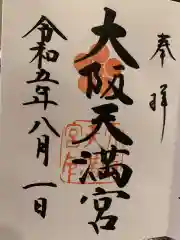 奉拝
大阪天満宮
令和五年八月一日